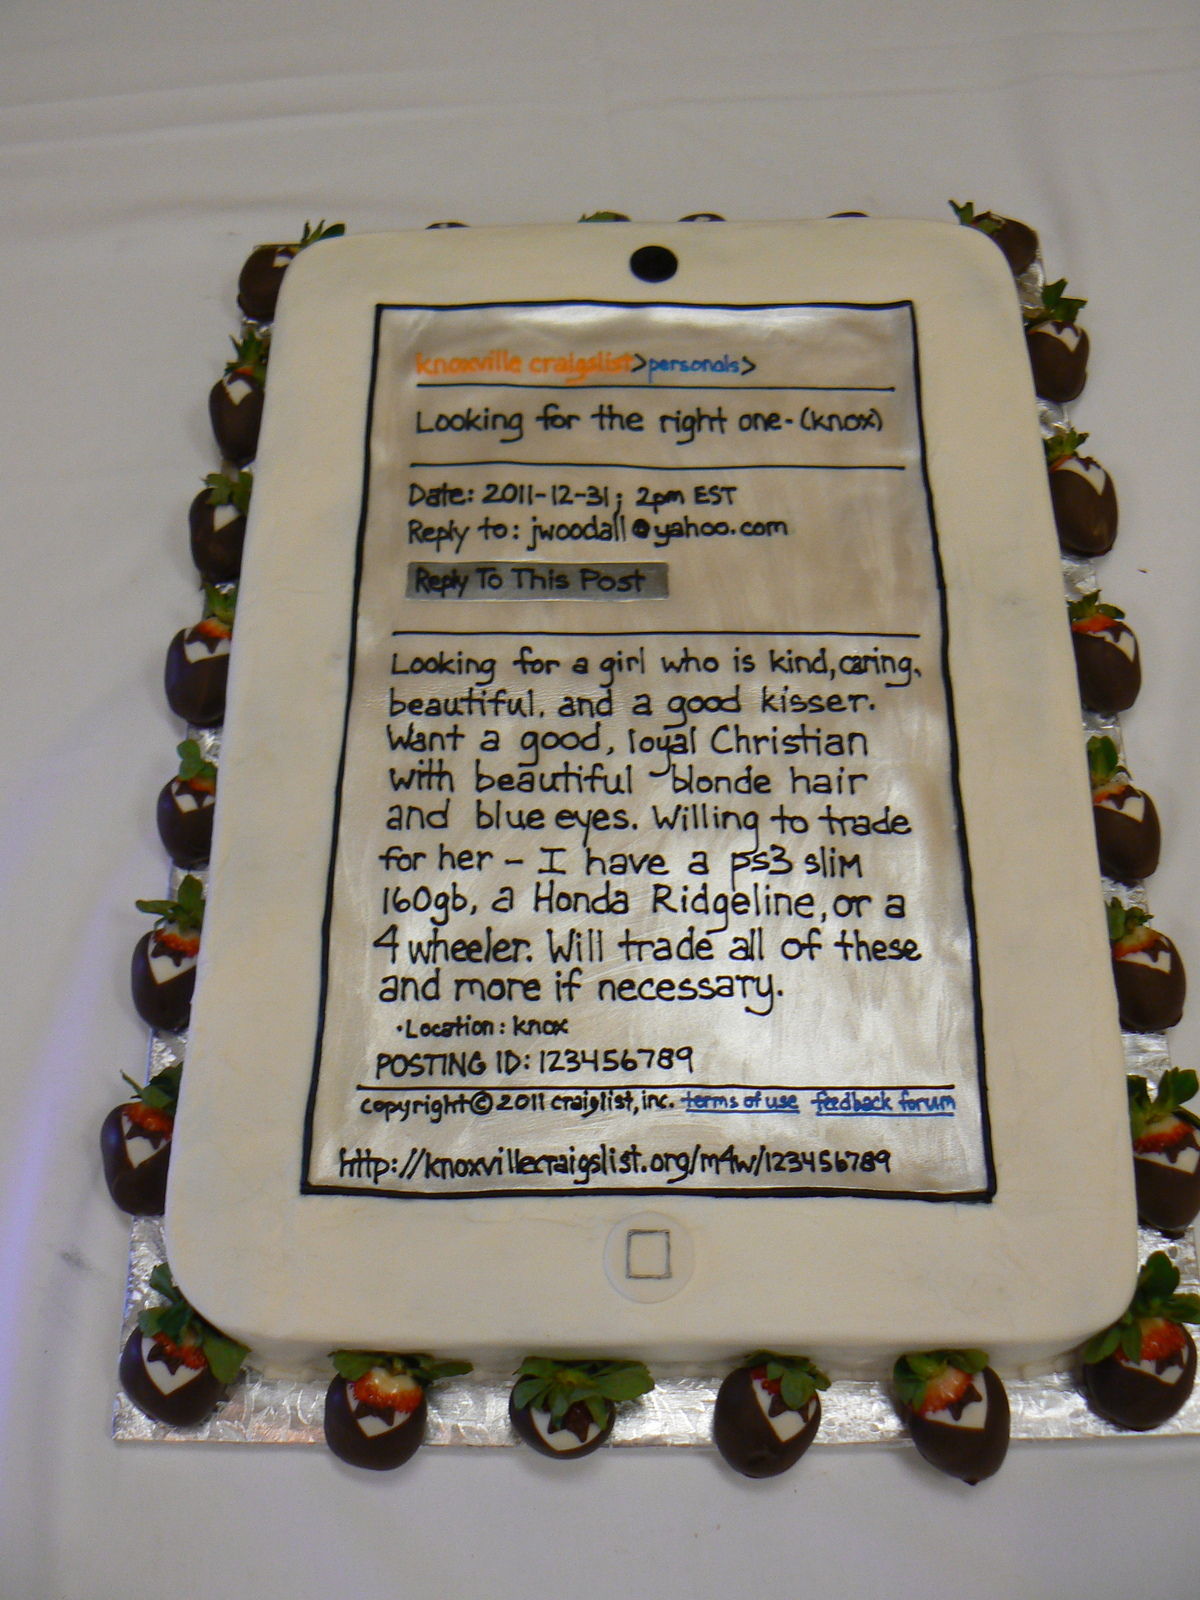 knoxville craigslist>personals>
Looking for the right one-(knox)
Date: 2011-12-31; 2pm EST
Reply to: jwoodall@yahoo.com
Reply To This Post
Looking for a girl who is kind, caring,
beautiful, and a good kisser.
Want a good, loyal Christian
with beautiful blonde hair
and blue eyes. Willing to trade
for her - I have a ps3 slim
160gb, a Honda Ridgeline, or a
4 wheeler. Will trade all of these
and more if necessary.
·Location: knox
POSTING ID: 123456789
copyright © 2011 craiglist, inc. terms of use feedback forum
http://knoxvillecraigslist.org/m4w/123456789